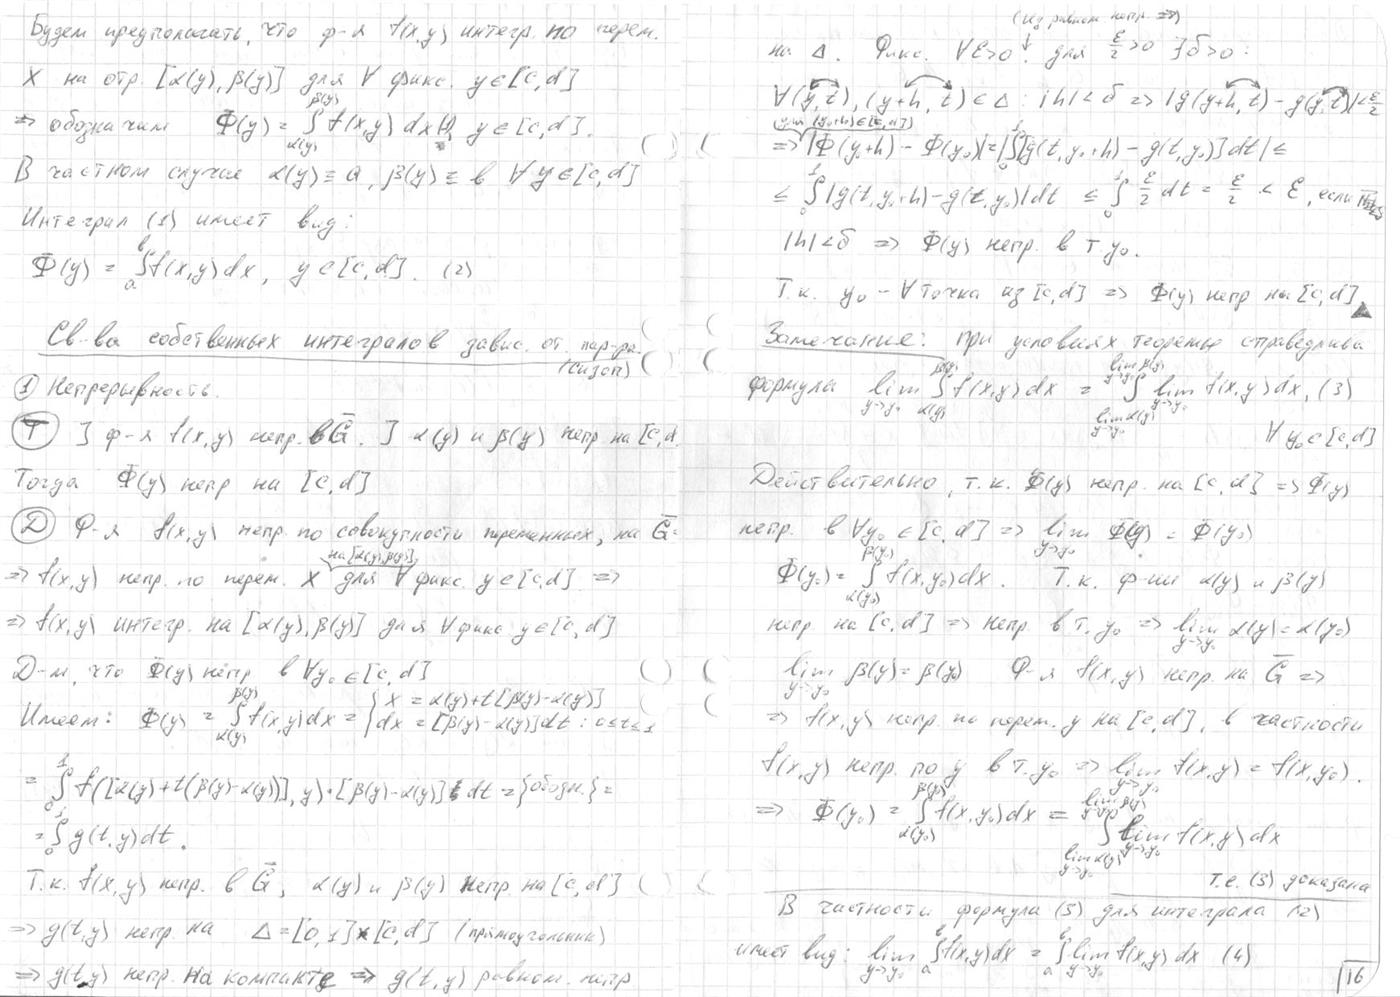 Будем предполагать, что ф-я f(x,y) интегр. по перем.
X на отр. [α(y), β(y)] для ∀ фикс. y∈[c,d]
⇒ обозначим Φ(y) = ∫_{α(y)}^{β(y)} f(x,y) dx (1), y∈[c,d].
В частном случае α(y) ≡ a, β(y) ≡ b ∀y∈[c,d]
Интеграл (1) имеет вид:
Φ(y) = ∫_a^b f(x,y) dx, y∈[c,d]. (2)
Св-ва собственных интегралов завис. от пар-ра.
(СИЗОП)
① Непрерывность.
Ⓣ ] ф-я f(x,y) непр. в G̅. ] α(y) и β(y) непр на [c,d
Тогда Φ(y) непр на [c,d]
Ⓓ Ф-я f(x,y) непр. по совокупности переменных, на G̅ ⇒
на [α(y),β(y)]
⇒ f(x,y) непр. по перем. X для ∀ фикс. y∈[c,d] ⇒
⇒ f(x,y) интегр. на [α(y), β(y)] для ∀ фикс y∈[c,d]
Д-м, что Φ(y) непр в ∀y₀∈[c,d]
Имеем: Φ(y) = ∫_{α(y)}^{β(y)} f(x,y)dx = { x = α(y)+t[β(y)-α(y)]
dx = [β(y)-α(y)]dt : 0≤t≤1
= ∫_0^1 f([α(y)+t(β(y)-α(y))], y)·[β(y)-α(y)] dt = {обозн.} =
= ∫_0^1 g(t,y)dt.
Т.к. f(x,y) непр. в G̅, α(y) и β(y) непр. на [c,d]
⇒ g(t,y) непр на Δ = [0,1]×[c,d] (прямоугольник)
⇒ g(t,y) непр. на компакте ⇒ g(t,y) равном. непр
(из равном непр. ⇒)
на Δ. Фикс. ∀ε>0 ↓ для ε/2>0 ∃δ>0:
∀(y,t), (y+h, t)∈Δ : |h|<δ ⇒ |g(y+h,t) - g(y,t)|<ε/2
(y₀+h)∈[c,d]
⇒ |Φ(y₀+h) - Φ(y₀)| = |∫_0^1 [g(t,y₀+h) - g(t,y₀)] dt| ≤
≤ ∫_0^1 |g(t,y₀+h)-g(t,y₀)|dt ≤ ∫_0^1 ε/2 dt = ε/2 < ε, если
|h|<δ ⇒ Φ(y) непр. в т. y₀.
Т.к. y₀ - ∀ точка из [c,d] ⇒ Φ(y) непр на [c,d] ▲
Замечание: При условиях теоремы справедлива
формула lim_{y→y₀} ∫_{α(y)}^{β(y)} f(x,y) dx = ∫_{lim_{y→y₀} α(y)}^{lim_{y→y₀} β(y)} lim_{y→y₀} f(x,y) dx, (3)
∀ y₀∈[c,d]
Действительно, т.к. Φ(y) непр. на [c,d] ⇒ Φ(y)
непр. в ∀y₀∈[c,d] ⇒ lim_{y→y₀} Φ(y) = Φ(y₀)
Φ(y₀) = ∫_{α(y₀)}^{β(y₀)} f(x,y₀)dx. Т.к. ф-ии α(y) и β(y)
непр. на [c,d] ⇒ непр. в т. y₀ ⇒ lim_{y→y₀} α(y) = α(y₀)
lim_{y→y₀} β(y) = β(y₀) Ф-я f(x,y) непр. на G̅ ⇒
⇒ f(x,y) непр. по перем. y на [c,d], в частности
f(x,y) непр. по y в т. y₀ ⇒ lim_{y→y₀} f(x,y) = f(x,y₀).
⇒ Φ(y₀) = ∫_{α(y₀)}^{β(y₀)} f(x,y₀)dx = ∫_{lim_{y→y₀} α(y)}^{lim_{y→y₀} β(y)} lim_{y→y₀} f(x,y) dx
т.е. (3) доказана
В частности формула (3) для интеграла (2)
имеет вид: lim_{y→y₀} ∫_a^b f(x,y)dx = ∫_a^b lim_{y→y₀} f(x,y) dx (4)
16